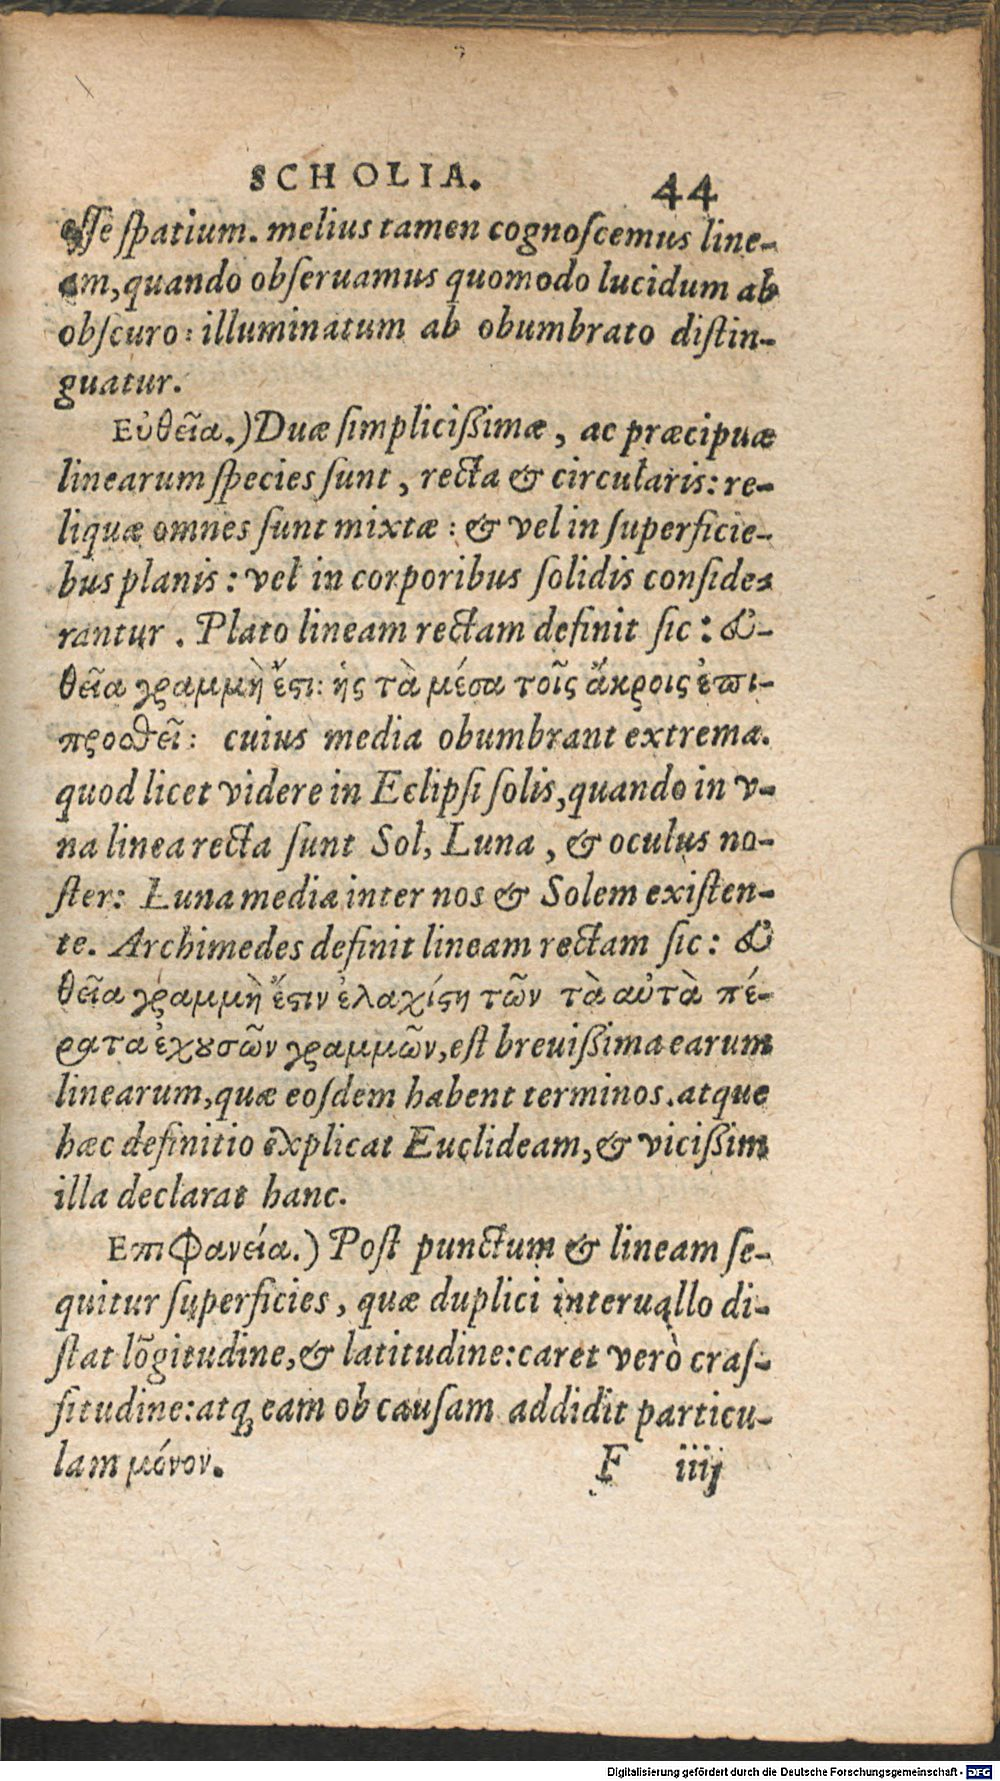 SCHOLIA. 44
esse spatium. melius tamen cognoscemus line-
am, quando obseruamus quomodo lucidum ab
obscuro: illuminatum ab obumbrato distin-
guatur.
Εὐθεῖα.) Duæ simplicißimæ, ac præcipuæ
linearum species sunt, recta & circularis: re-
liquæ omnes sunt mixtæ: & vel in superficie-
bus planis: vel in corporibus solidis conside-
rantur. Plato lineam rectam definit sic: εὐ-
θεῖα γραμμὴ ἔστι: ἡς τὰ μέσα τοῖς ἄκροις ἐπι-
προσθεῖ: cuius media obumbrant extrema.
quod licet videre in Eclipsi solis, quando in v-
na linea recta sunt Sol, Luna, & oculus no-
ster: Luna media inter nos & Solem existen-
te. Archimedes definit lineam rectam sic: εὐ
θεῖα γραμμὴ ἔστιν ἐλαχίστη τῶν τὰ αὐτὰ πέ-
ρατα ἐχουσῶν γραμμῶν, est breuißima earum
linearum, quæ eosdem habent terminos. atque
hæc definitio explicat Euclideam, & vicißim
illa declarat hanc.
Επιφανεία.) Post punctum & lineam se-
quitur superficies, quæ duplici interuallo di-
stat lõgitudine, & latitudine: caret verò cras-
situdine: atq; eam ob causam addidit particu-
lam μόνον. F iiij
Digitalisierung gefördert durch die Deutsche Forschungsgemeinschaft - DFG